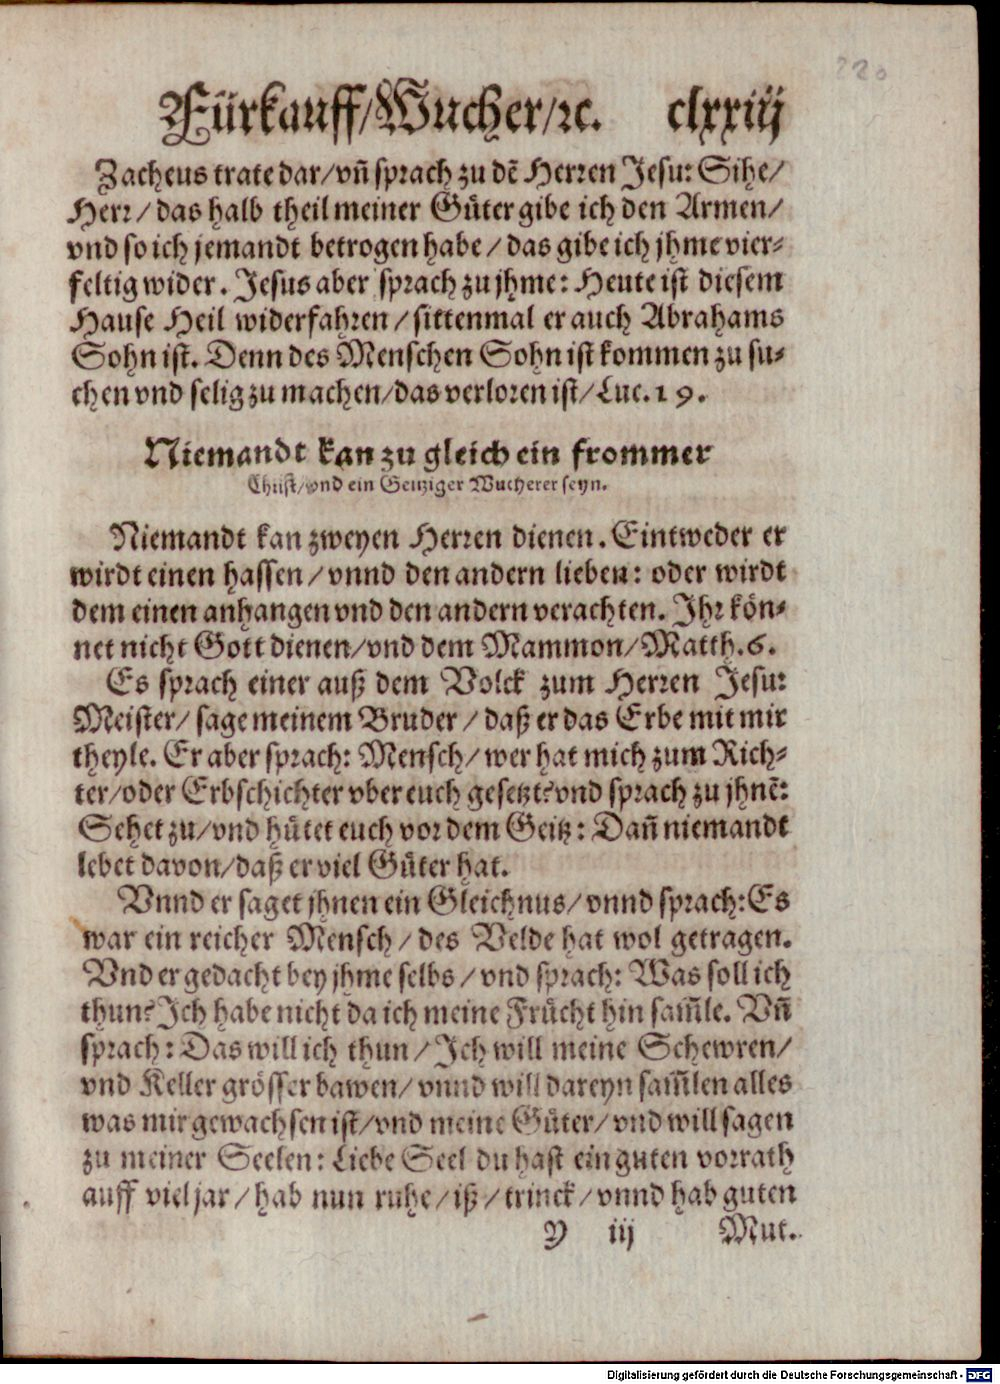 220
Fürkauff/Wucher/ꝛc. clxxiij
Zacheus trate dar/vñ sprach zu dẽ Herren Jesu: Sihe/
Herr/das halb theil meiner Güter gibe ich den Armen/
vnd so ich jemandt betrogen habe/das gibe ich jhme vier-
feltig wider. Jesus aber sprach zu jhme: Heute ist diesem
Hause Heil widerfahren/sittenmal er auch Abrahams
Sohn ist. Denn des Menschen Sohn ist kommen zu su-
chen vnd selig zu machen/das verloren ist/Luc. 19.
Niemandt kan zu gleich ein frommer
Christ/vnd ein Geitziger Wucherer seyn.
Niemandt kan zweyen Herren dienen. Eintweder er
wirdt einen hassen/vnnd den andern lieben: oder wirdt
dem einen anhangen vnd den andern verachten. Ihr kön-
net nicht Gott dienen/vnd dem Mammon/Matth. 6.
Es sprach einer auß dem Volck zum Herren Jesu:
Meister/sage meinem Bruder/daß er das Erbe mit mir
theyle. Er aber sprach: Mensch/wer hat mich zum Rich-
ter/oder Erbschichter vber euch gesetzt? vnd sprach zu jhnẽ:
Sehet zu/vnd hütet euch vor dem Geitz: Dañ niemandt
lebet davon/daß er viel Güter hat.
Vnnd er saget jhnen ein Gleichnus/vnnd sprach: Es
war ein reicher Mensch/des Velde hat wol getragen.
Vnd er gedacht bey jhme selbs/vnd sprach: Was soll ich
thun? Ich habe nicht da ich meine Frücht hin sam̃le. Vñ
sprach: Das will ich thun/Ich will meine Schewren/
vnd Keller grösser bawen/vnnd will dareyn sam̃len alles
was mir gewachsen ist/vnd meine Güter/vnd will sagen
zu meiner Seelen: Liebe Seel du hast ein guten vorrath
auff viel jar/hab nun ruhe/iß/trinck/vnnd hab guten
Y iij Mut.
Digitalisierung gefördert durch die Deutsche Forschungsgemeinschaft - DFG